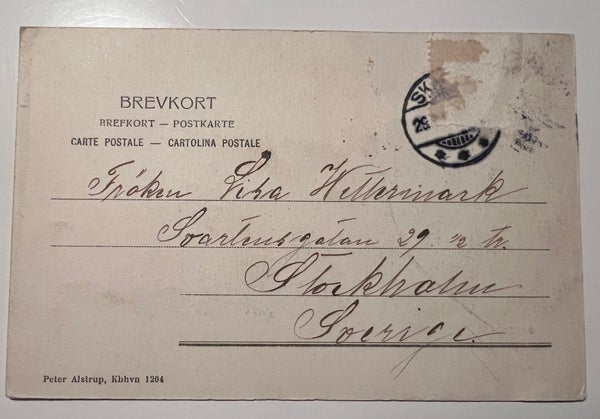 BREVKORT
BREFKORT — POSTKARTE
CARTE POSTALE — CARTOLINA POSTALE
SK
29
Fröken Lisa Wettermark
Svartensgatan 29. ½ tr.
Stockholm
Sverige.
Peter Alstrup, Kbhvn 1204